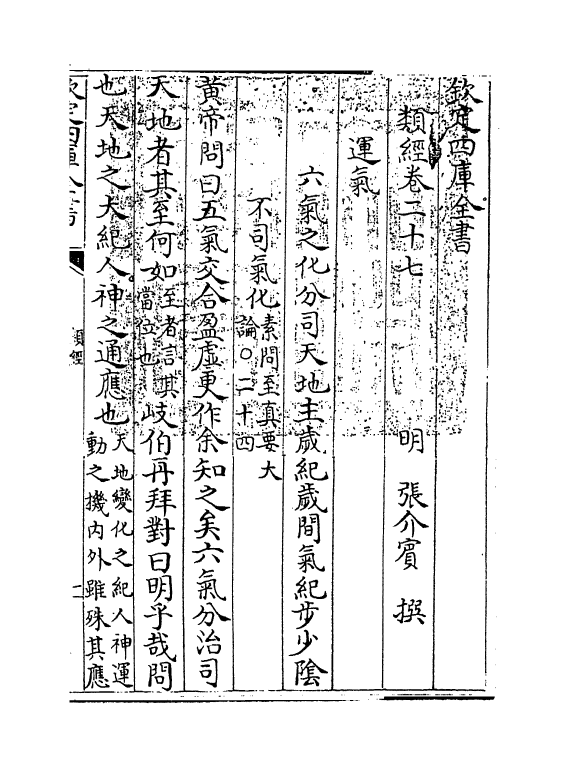 欽定四庫全書
類經卷二十七
明 張介賓 撰
運氣
六氣之化分司天地主歲紀歲間氣紀步少陰
不司氣化素問至真要大
論○二十四
黃帝問曰五氣交合盈虛更作余知之矣六氣分治司
天地者其至何如至者言其
當位也岐伯再拜對曰明乎哉問
也天地之大紀人神之通應也天地變化之紀人神運
動之機內外雖殊其應
欽定四庫全書
類經